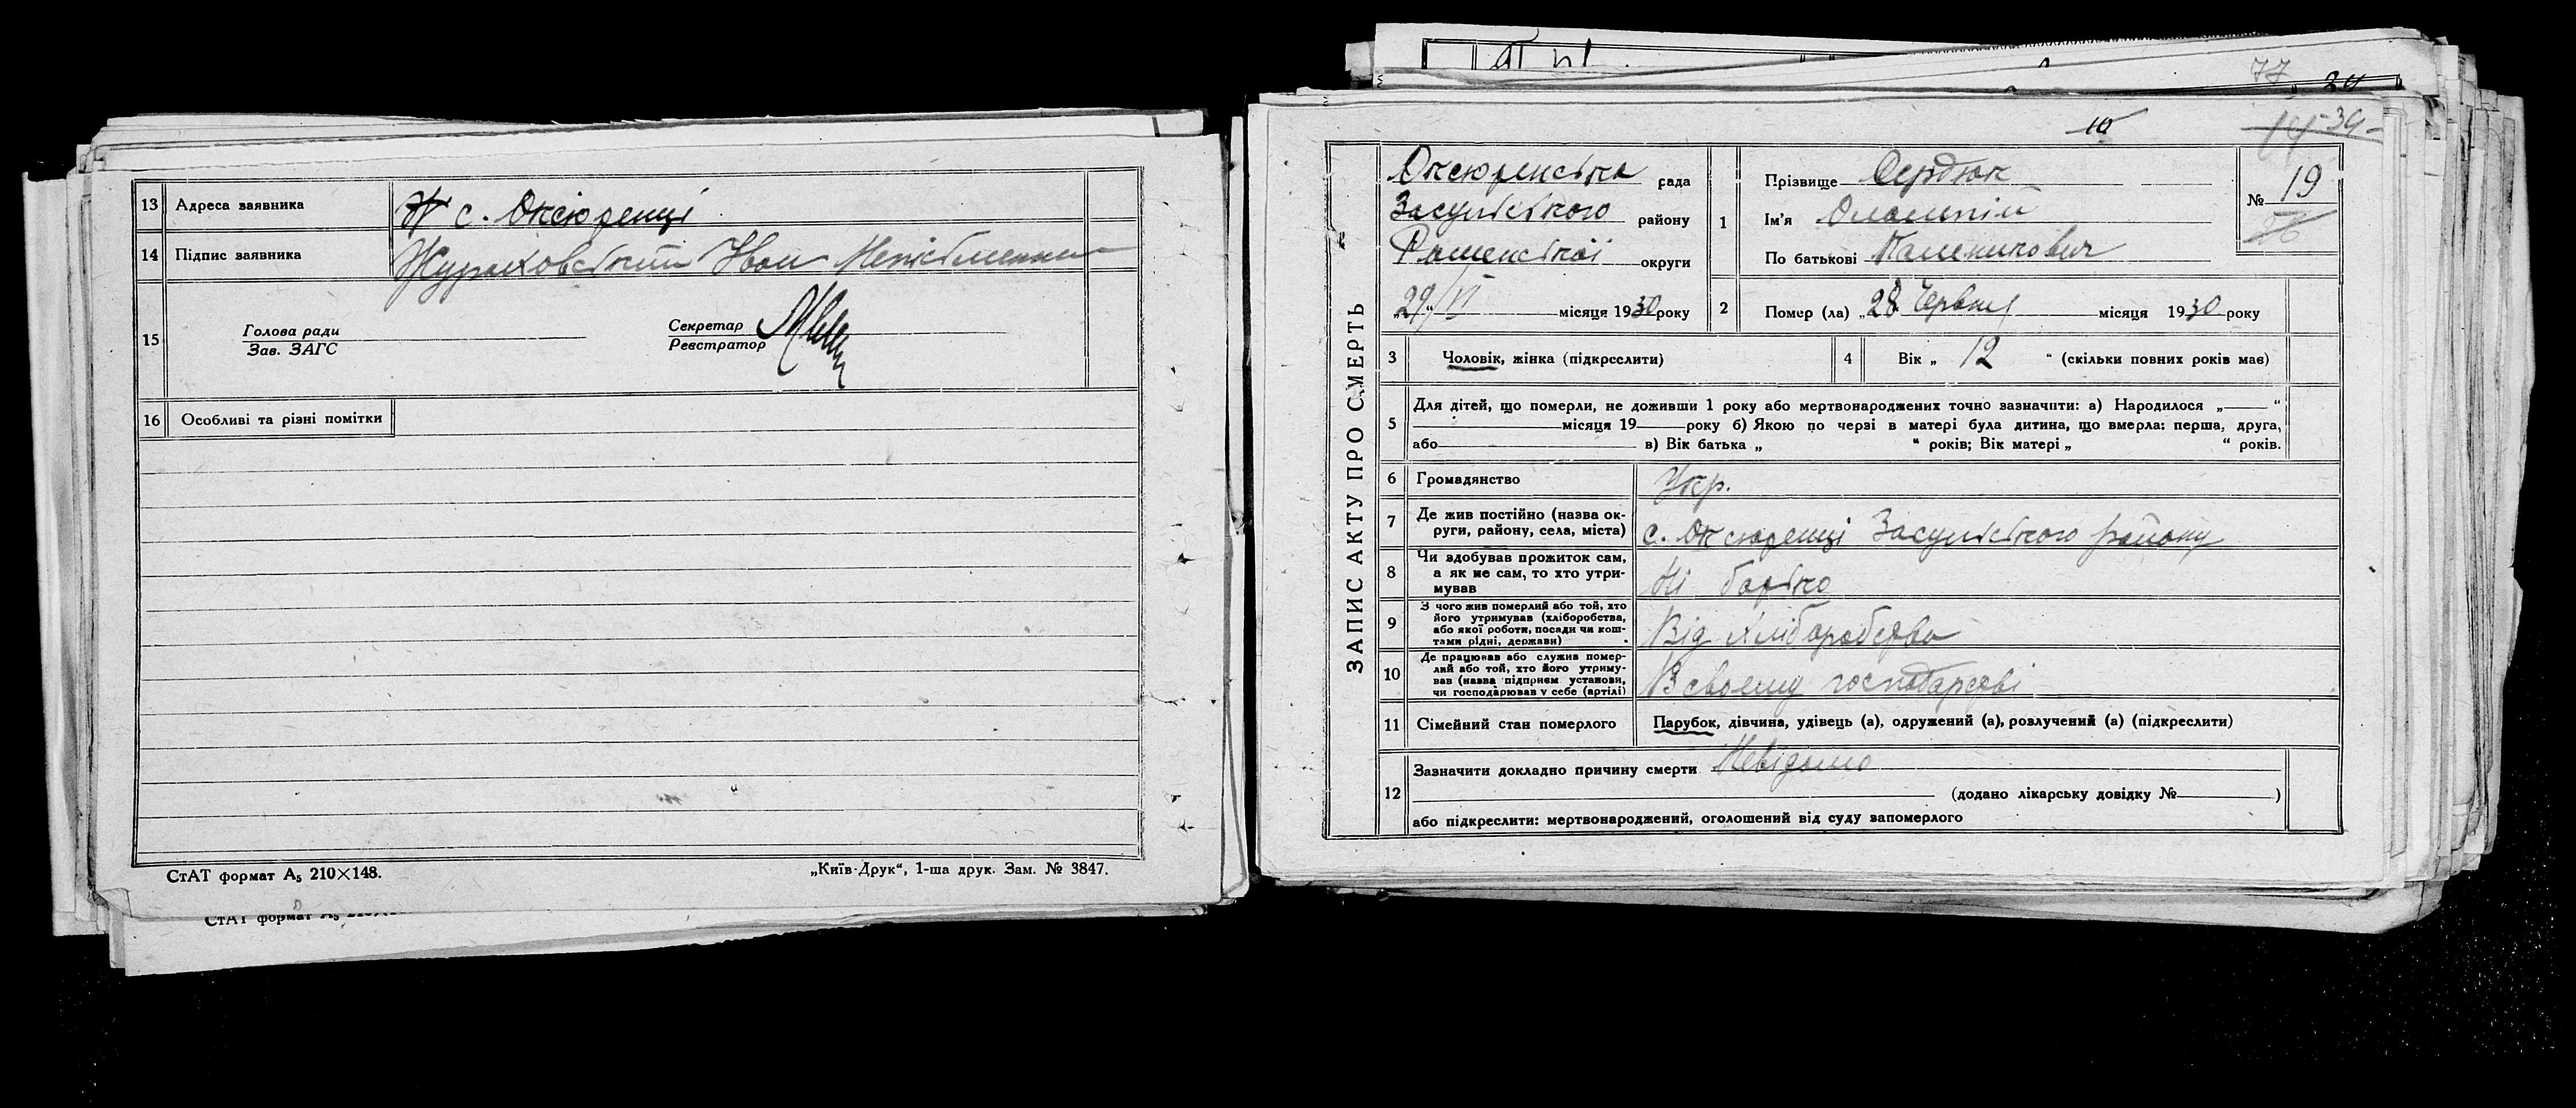 13 Адреса заявника с. Оксюренці
14 Підпис заявника Жураховський Іван Неписьменни
15
Голова ради
Зав. ЗАГС
Секретар
Реєстратор
16 Особливі та різні помітки
СтАТ формат А5 210×148.
„Київ-Друк“, 1-ша друк. Зам. № 3847.
СтАТ формат А5
77
10
39
ЗАПИС АКТУ ПРО СМЕРТЬ
Оксюренська рада
Засульського району
Роменської округи
„29“ VI місяця 1930 року
1 Прізвище Сердюк
Ім'я Олампій
По батькові Паменкович
№ 19
2 Помер (ла) „28 Червня місяця 1930 року
3 Чоловік, жінка (підкреслити)
4 Вік „ 12 “ (скільки повних років має)
5 Для дітей, що померли, не доживши 1 року або мертвонароджених точно зазначити: а) Народилося „ “
місяця 19 року б) Якою по черзі в матері була дитина, що вмерла: перша, друга,
або в) Вік батька „ “ років; Вік матері „ “ років.
6 Громадянство Укр.
7 Де жив постійно (назва ок-
руги, району, села, міста) с. Оксюренці Засульського району
8 Чи здобував прожиток сам,
а як не сам, то хто утри-
мував Ні батько
9 З чого жив померлий або той, хто
його утримував (хліборобства,
або якої роботи, посади чи кош-
тами рідні, держави) Від хліборобства
10 Де працював або служив помер-
лий або той, хто його утриму-
вав (назва підприєм установи,
чи господарював у себе (артілі) В своему господарстві
11 Сімейний стан померлого Парубок, дівчина, удівець (а), одружений (а), розлучений (а) (підкреслити)
12 Зазначити докладно причину смерти Невідомо
(додано лікарську довідку № )
або підкреслити: мертвонароджений, оголошений від суду запомерлого